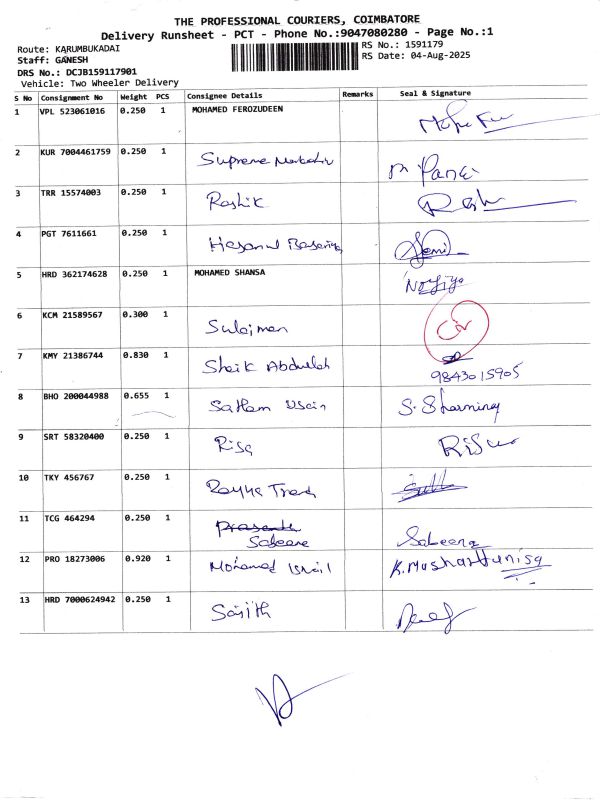 THE PROFESSIONAL COURIERS, COIMBATORE
Delivery Runsheet - PCT - Phone No.:9047080280 - Page No.:1
Route: KARUMBUKADAI
Staff: GANESH
DRS No.: DCJB159117901
Vehicle: Two Wheeler Delivery
RS No.: 1591179
RS Date: 04-Aug-2025
S No Consignment No Weight PCS Consignee Details Remarks Seal & Signature
1 VPL 523061016 0.250 1 MOHAMED FEROZUDEEN
2 KUR 7004461759 0.250 1 Supreme
3 TRR 15574003 0.250 1 Rashik
4 PGT 7611661 0.250 1
5 HRD 362174628 0.250 1 MOHAMED SHANSA
6 KCM 21589567 0.300 1 Sulaiman
7 KMY 21386744 0.830 1 Shaik Abdullah
9843015905
8 BHO 200044988 0.655 1 Satham Usain
9 SRT 58320400 0.250 1
10 TKY 456767 0.250 1
11 TCG 464294 0.250 1
Sabeena
12 PRO 18273006 0.920 1 Mohamed Ismail
13 HRD 7000624942 0.250 1 Sajith